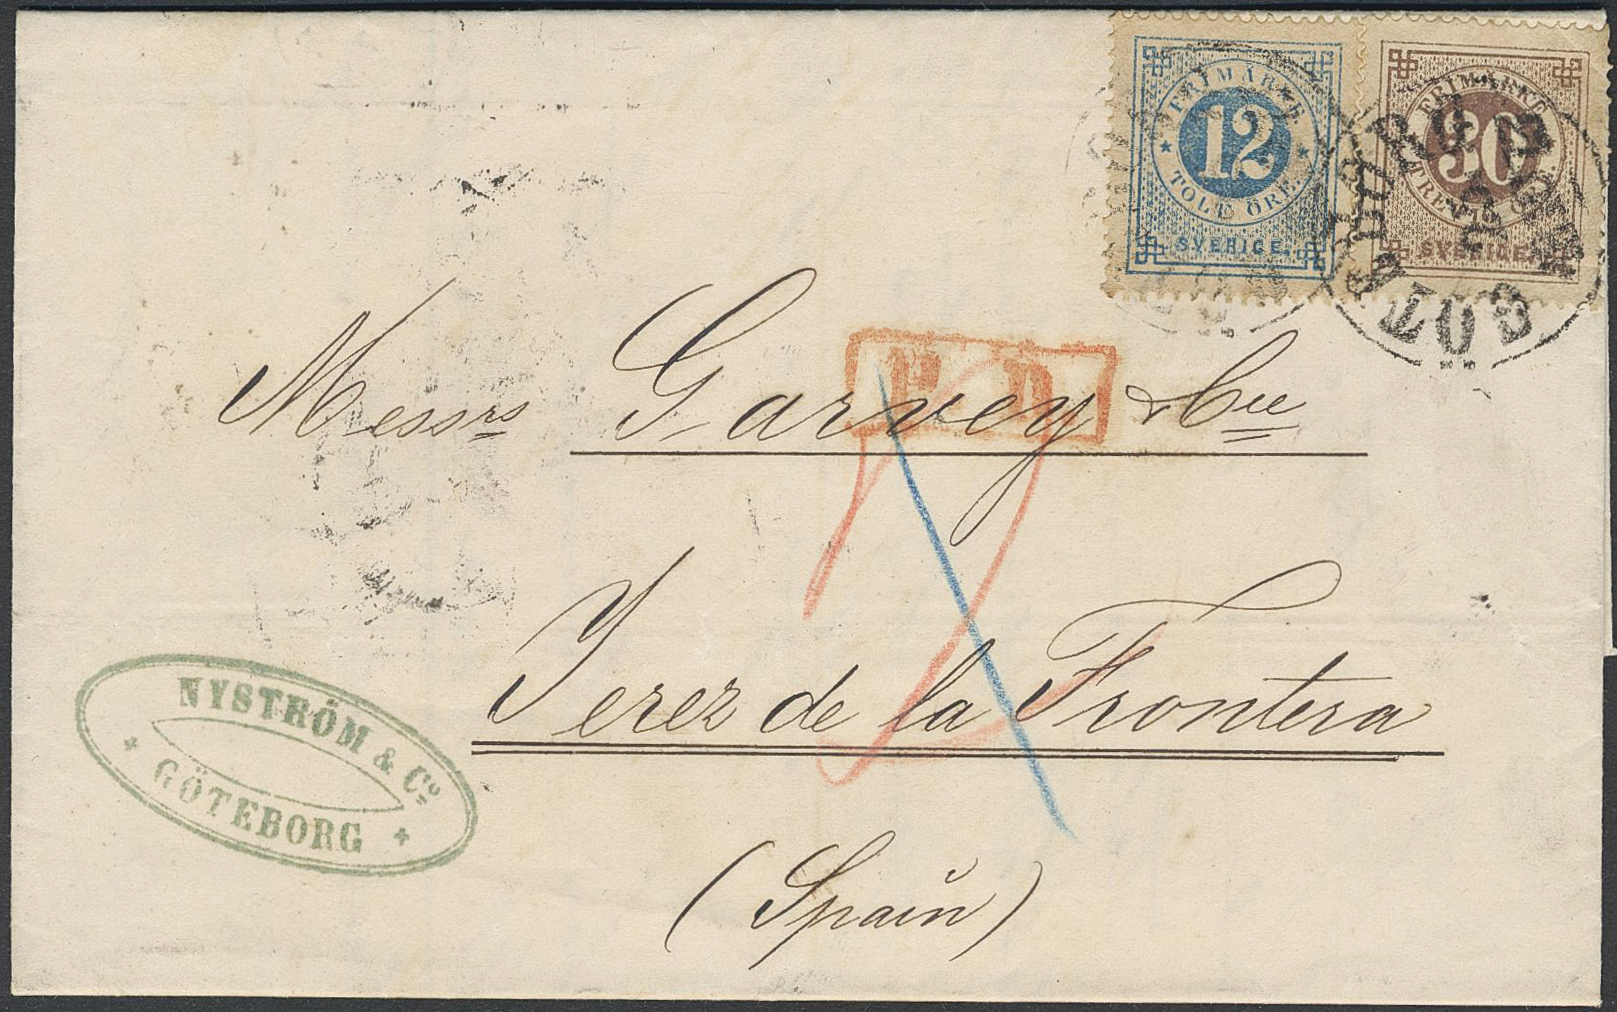 FRIMÄRKE
12
TOLF ÖRE
SVERIGE.
FRIMÄRKE
30
TRETTIO ÖRE
SVERIGE.
GÖTEBORG
P. D.
Messrs Garvey & Cie
Jerez de la Frontera
(Spain)
NYSTRÖM & Co
GÖTEBORG